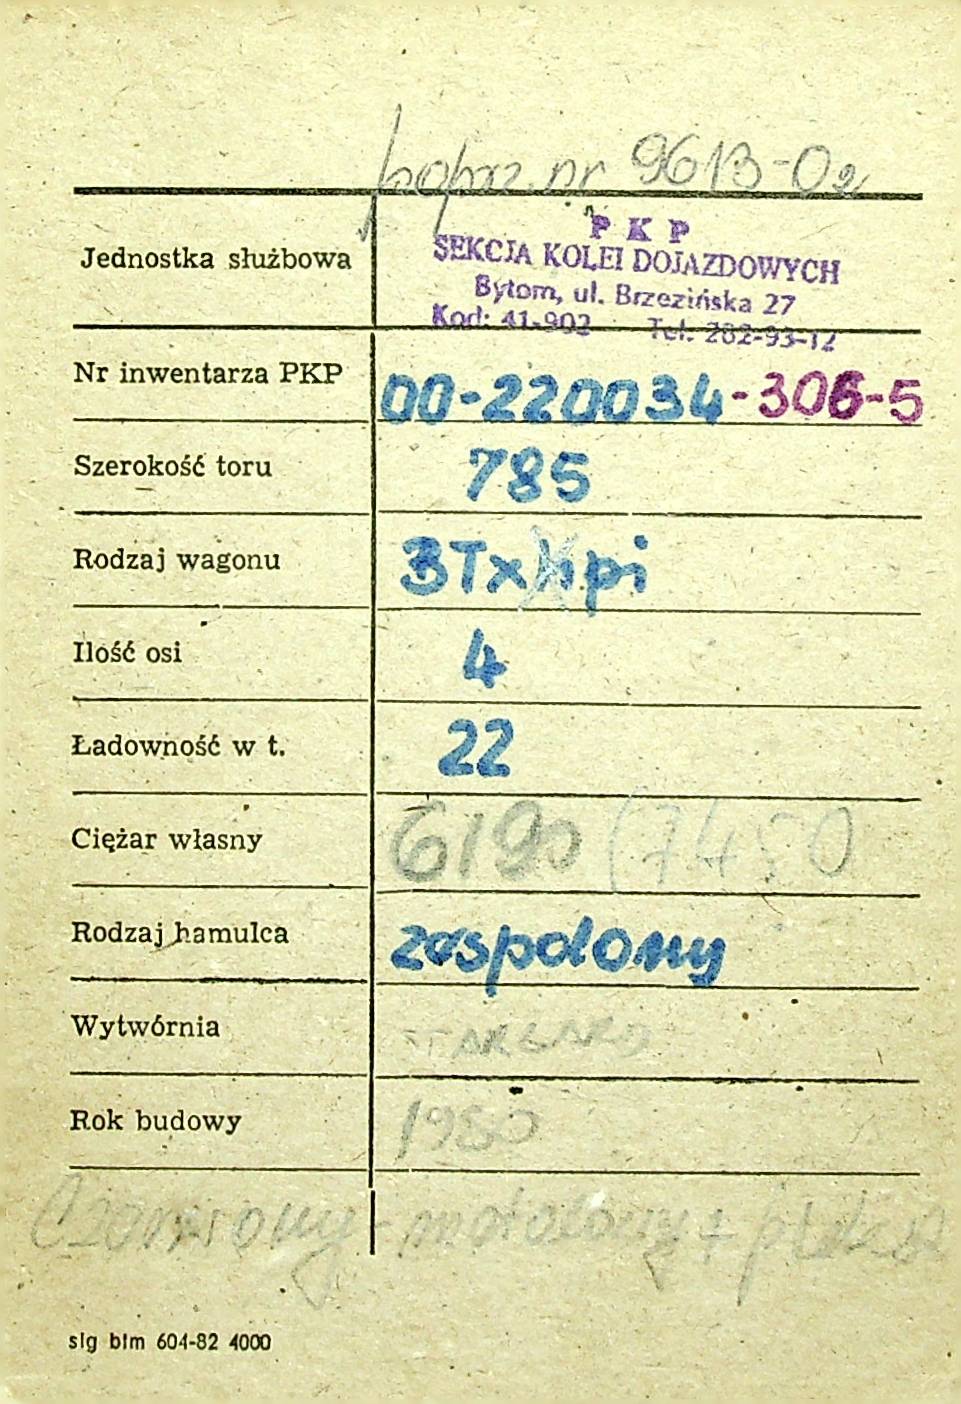 poprz. nr 9613-02
Jednostka służbowa
PKP
SEKCJA KOLEI DOJAZDOWYCH
Bytom, ul. Brzezińska 27
Kod: 41-902 Tel. 282-93-12
Nr inwentarza PKP 00-220034-306-5
Szerokość toru 785
Rodzaj wagonu 3Txhpi
Ilość osi 4
Ładowność w t. 22
Ciężar własny 6190 (7450
Rodzaj hamulca zespolony
Wytwórnia STARGARD
Rok budowy 1980
Czerwony - metalowy +
slg blm 604-82 4000